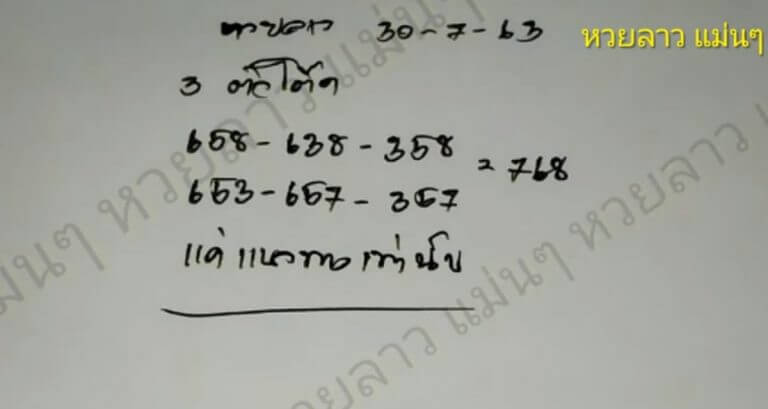 หวยลาว 30-7-63
หวยลาว แม่นๆ
3 ตัวโต๊ด
658-638-358
= 768
653-657-357
แค่แนวทางเท่านั้น
หวยลาว แม่นๆ หวยลาว แม่นๆ
แม่นๆ หวยลาว แม่นๆ